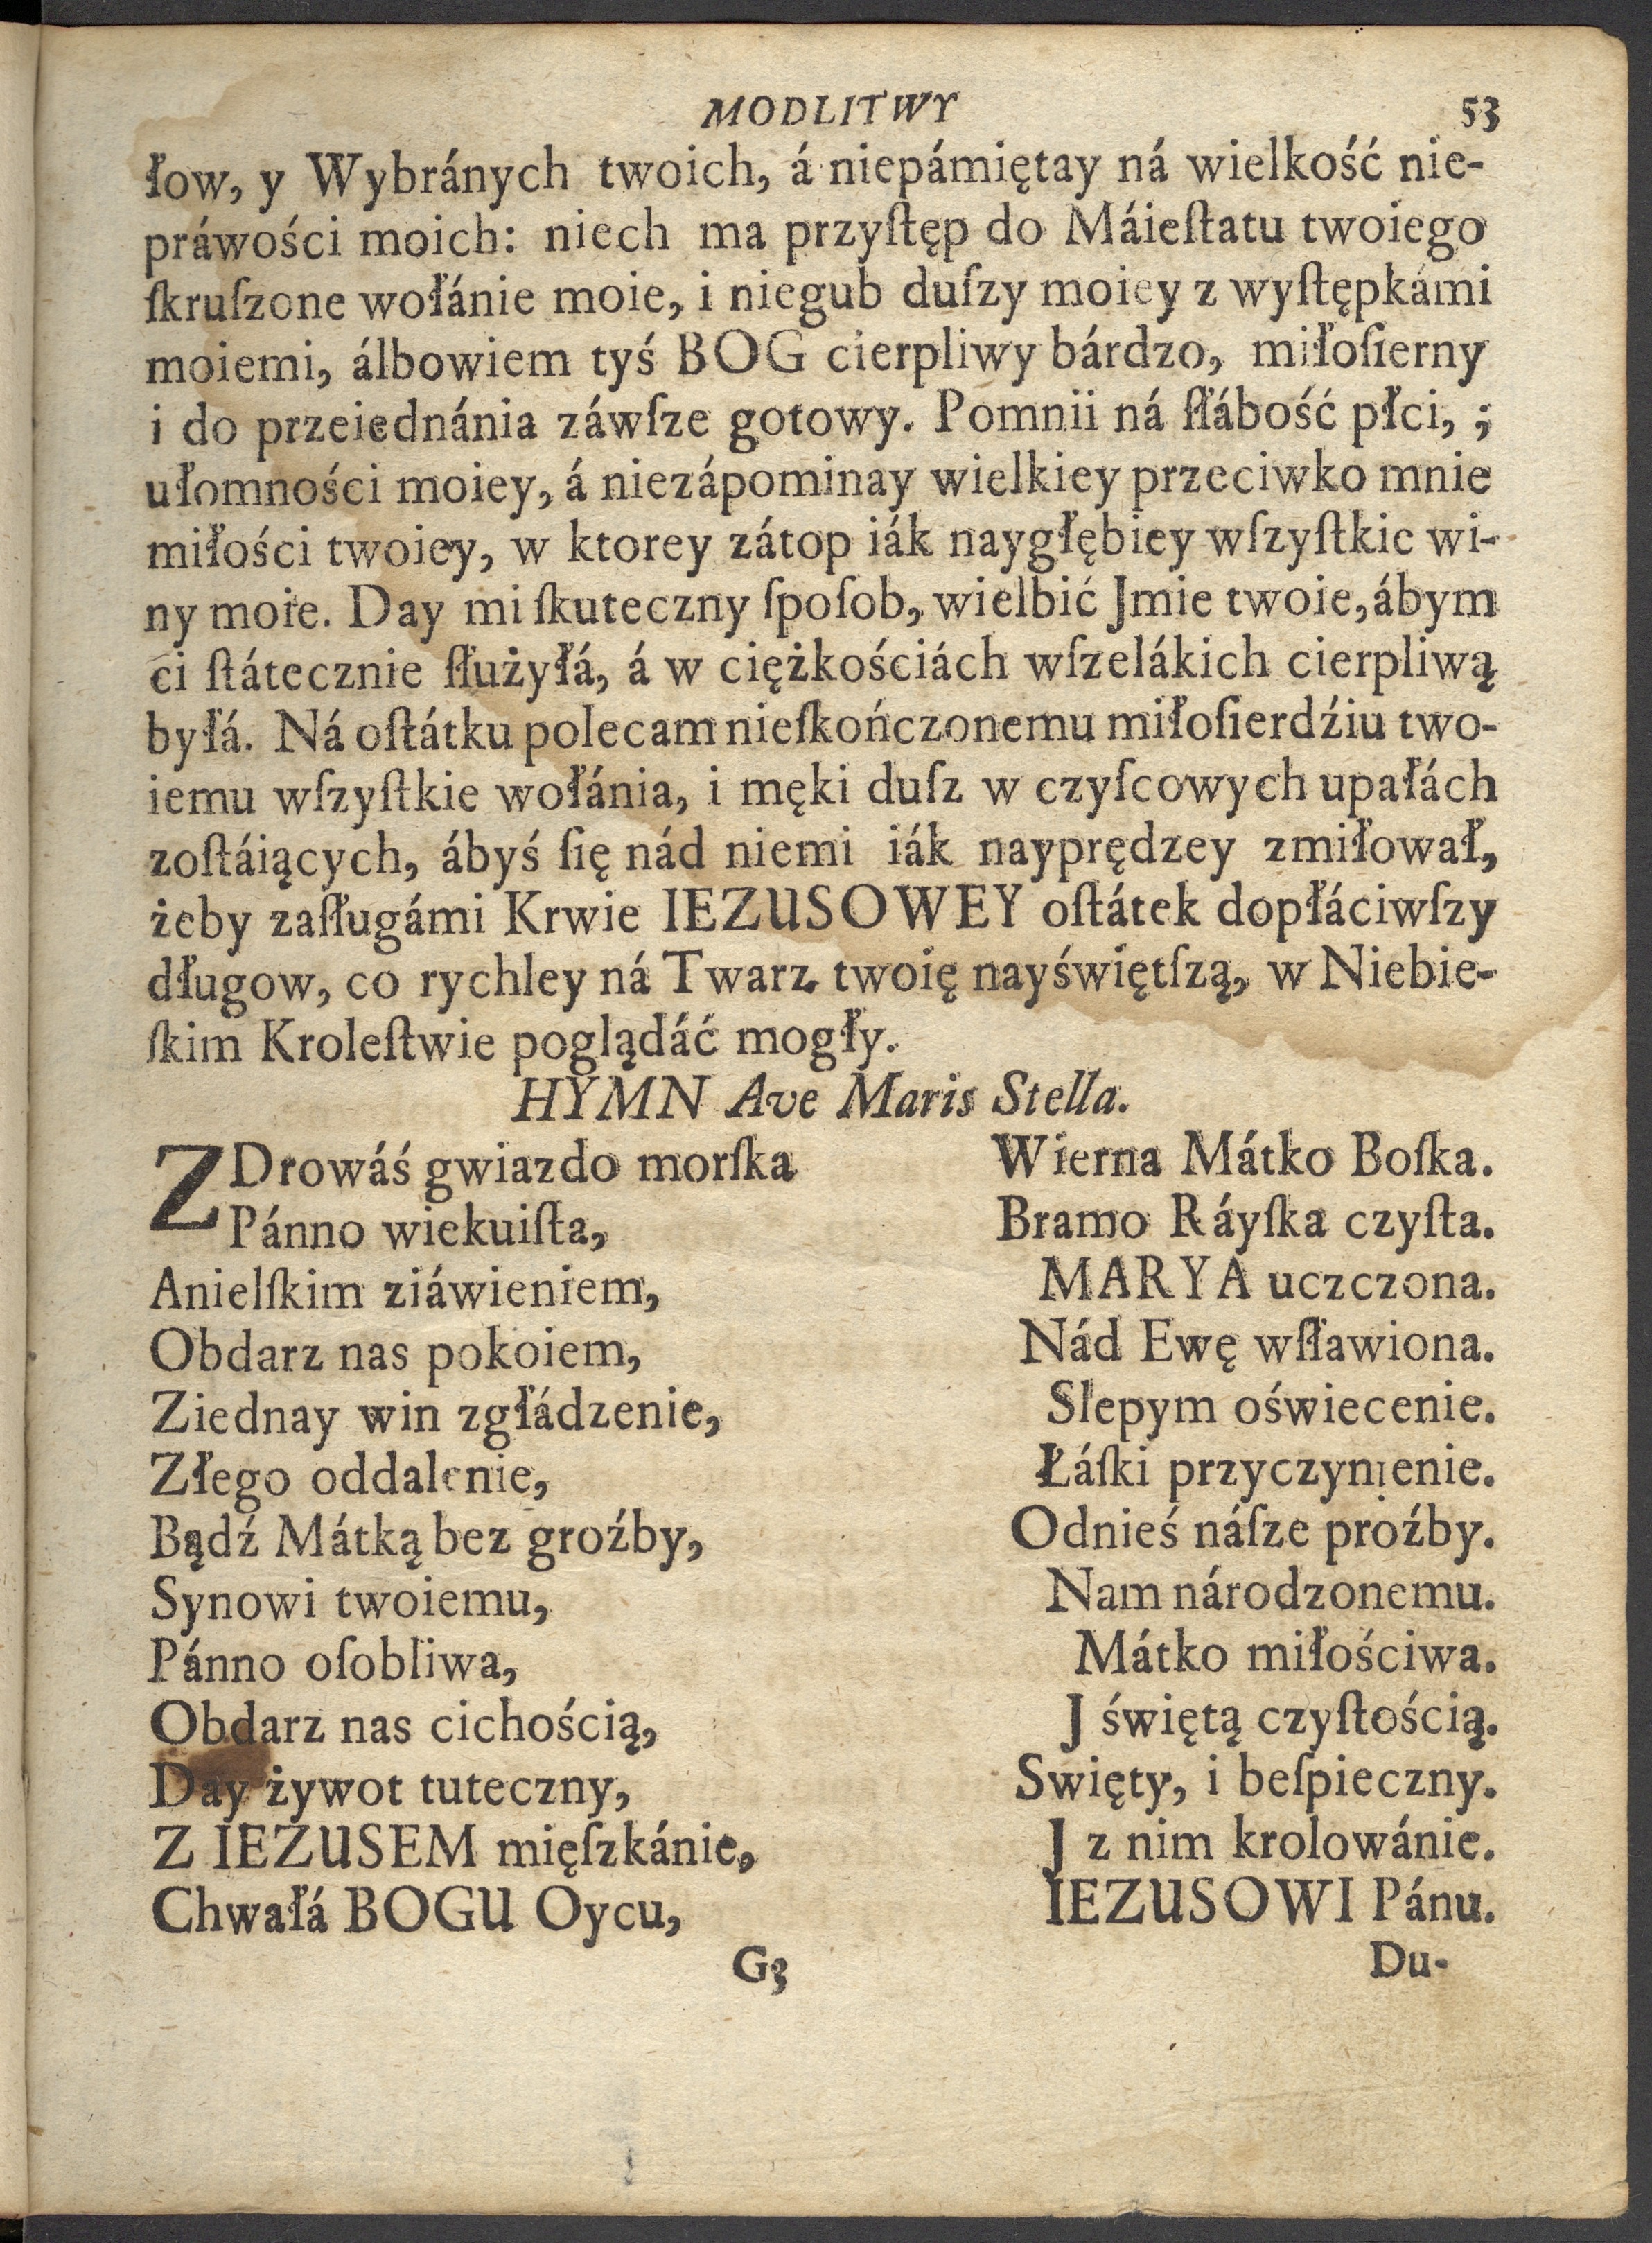 MODLITWY 53
łow, y Wybránych twoich, á niepámiętay ná wielkość nie-
práwości moich: niech ma przyſtęp do Máieſtatu twoiego
ſkruſzone wołánie moie, i niegub duſzy moiey z wyſtępkámi
moiemi, álbowiem tyś BOG cierpliwy bárdzo, miłoſierny
i do przeiednánia záwſze gotowy. Pomnii ná ſłábość płci, ;
ułomności moiey, á niezápominay wielkiey przeciwko mnie
miłości twoiey, w ktorey zátop iák naygłębiey wſzyſtkie wi-
ny moie. Day mi ſkuteczny ſpoſob, wielbić Jmie twoie, ábym
ci ſtátecznie ſłużyłá, á w ciężkościách wſzelákich cierpliwą
byłá. Ná oſtátku polecam nieſkończonemu miłoſierdźiu two-
iemu wſzyſtkie wołánia, i męki duſz w czyſcowych upałách
zoſtáiących, ábyś ſię nád niemi iák nayprędzey zmiłował,
żeby zaſługámi Krwie IEZUSOWEY oſtátek dopłáciwſzy
długow, co rychley ná Twarz twoię nayświętſzą, w Niebie-
ſkim Kroleſtwie poglądáć mogły.
HYMN Ave Maris Stella.
ZDrowáś gwiazdo morſka Wierna Mátko Boſka.
Pánno wiekuiſta, Bramo Ráyſka czyſta.
Anielſkim ziáwieniem, MARYA uczczona.
Obdarz nas pokoiem, Nád Ewę wſławiona.
Ziednay win zgłádzenie, Slepym oświecenie.
Złego oddalenie, Łáſki przyczynienie.
Bądź Mátką bez groźby, Odnieś náſze proźby.
Synowi twoiemu, Nam národzonemu.
Pánno oſobliwa, Mátko miłościwa.
Obdarz nas cichością, J świętą czyſtością.
Day żywot tuteczny, Swięty, i beſpieczny.
Z IEZUSEM mięſzkánie, J z nim krolowánie.
Chwałá BOGU Oycu, IEZUSOWI Pánu.
G3 Du-